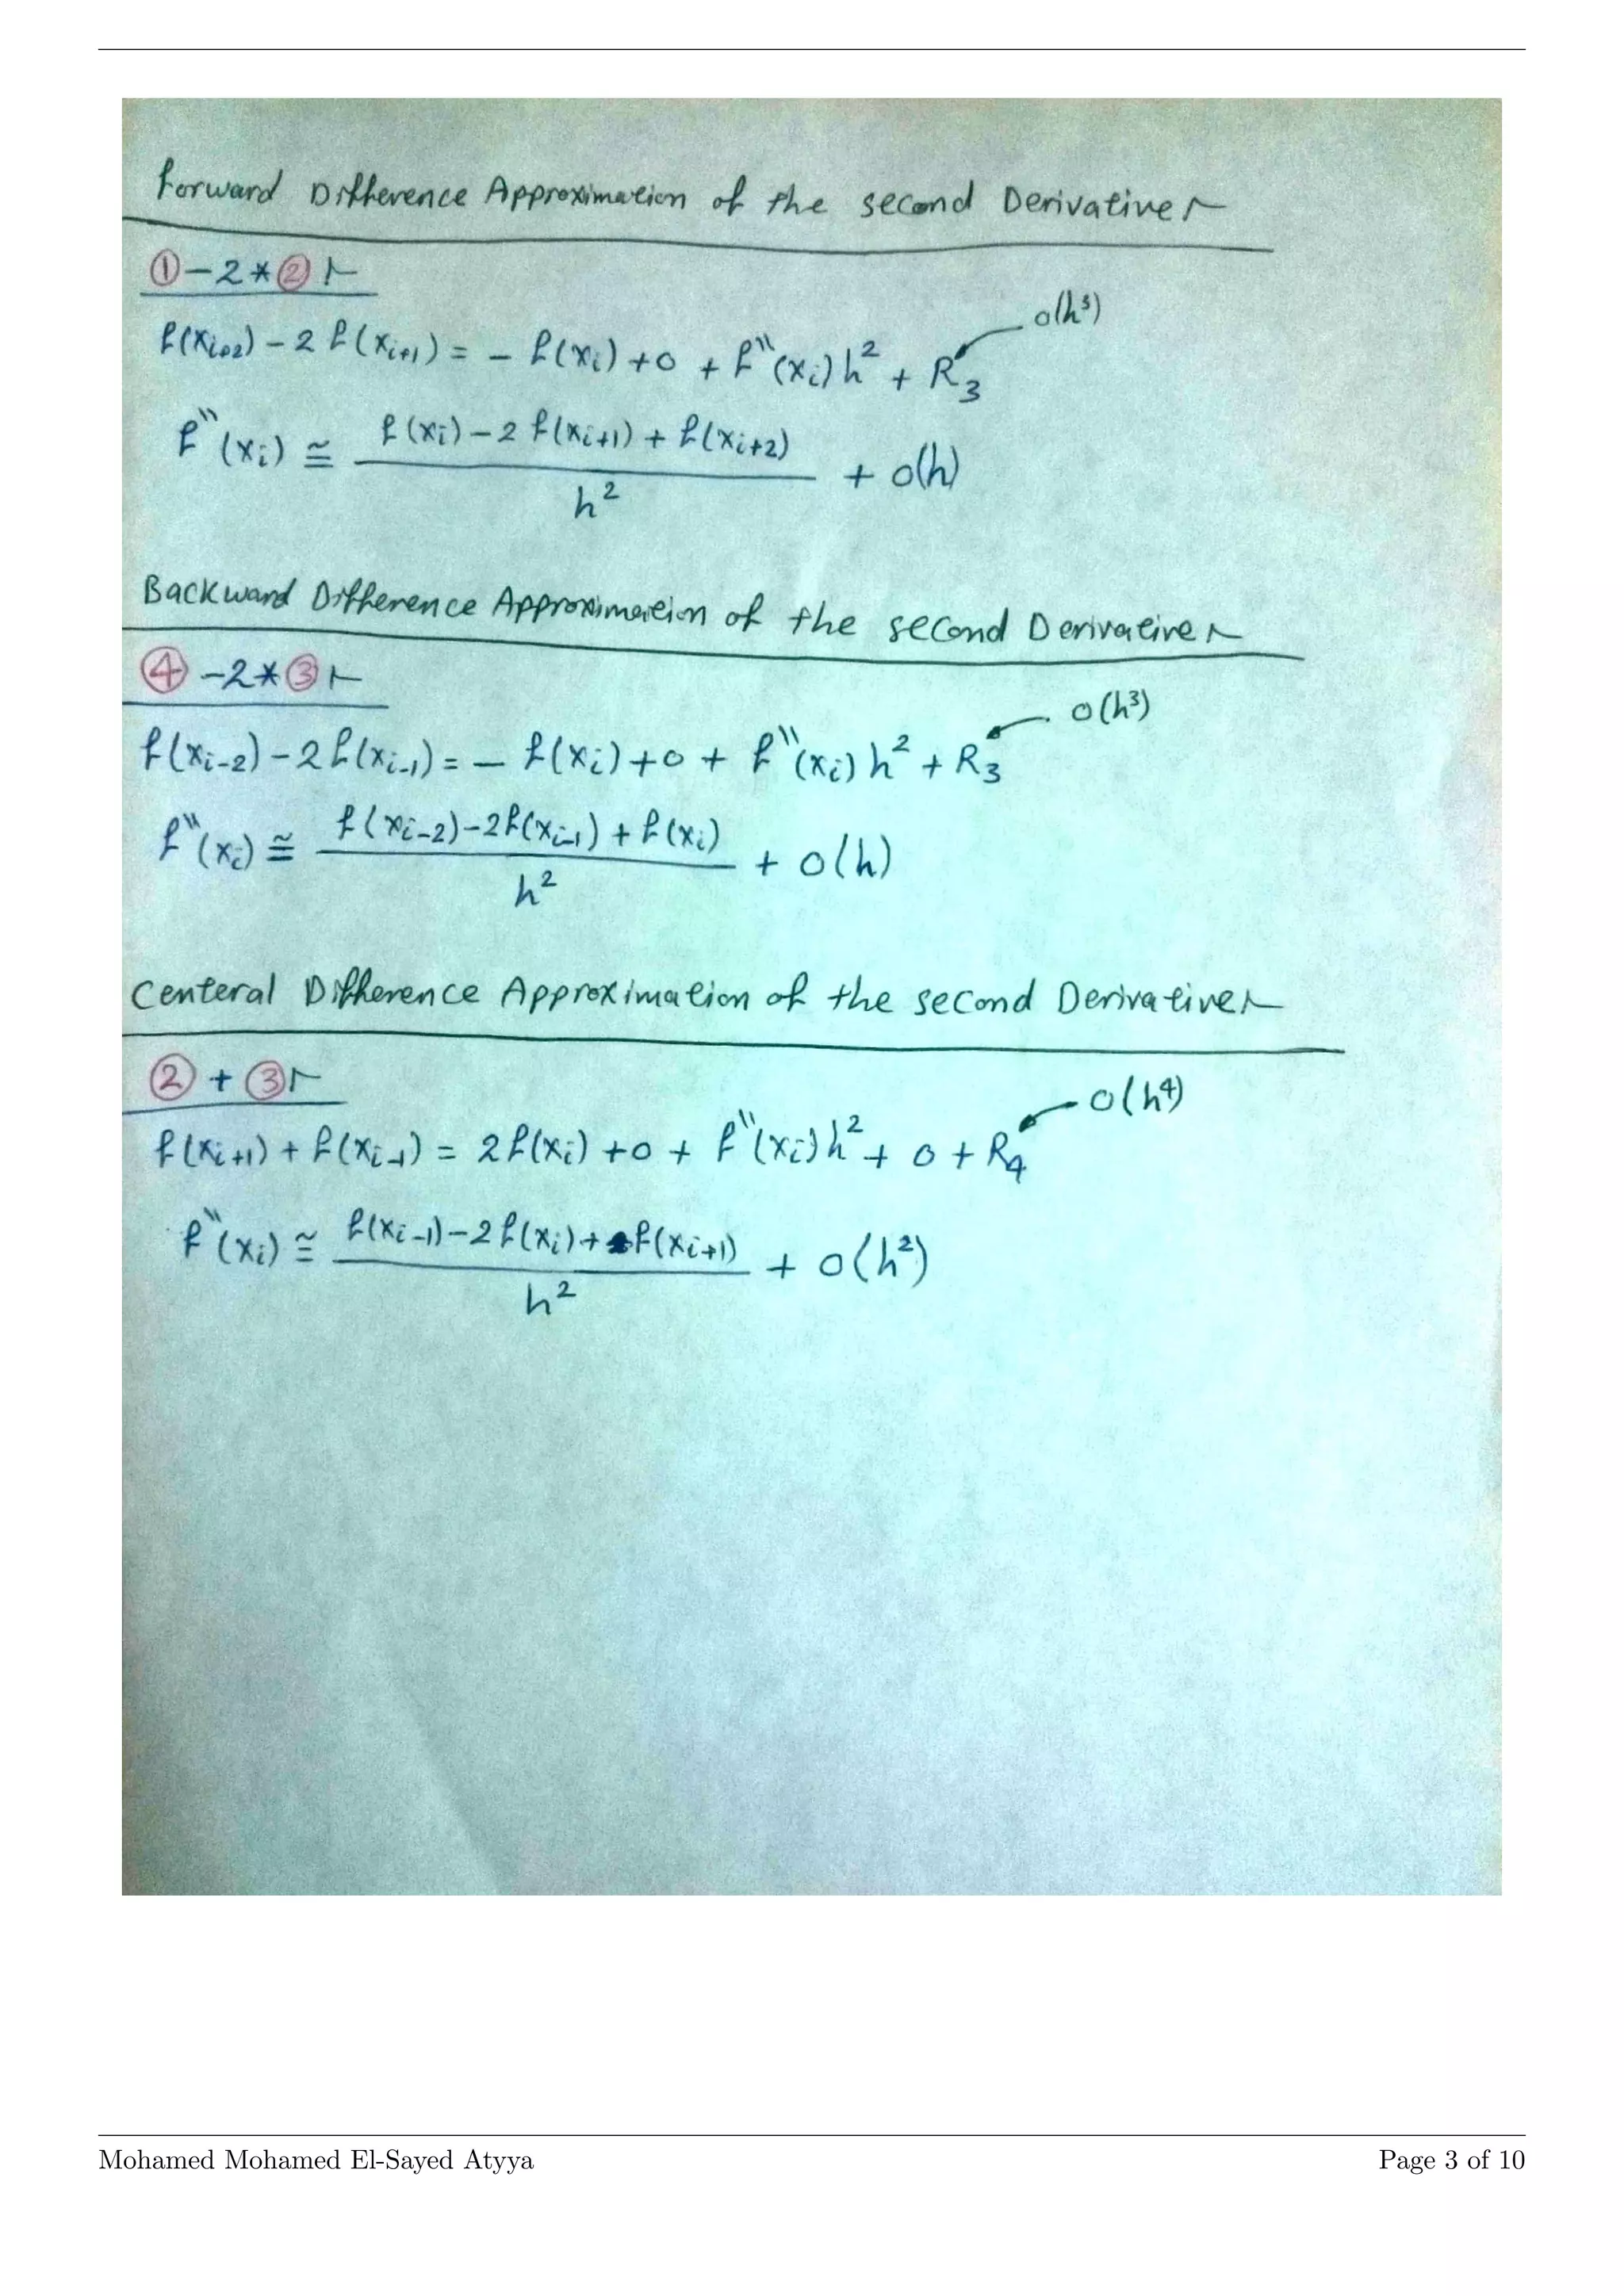 Forward Difference Approximation of the second Derivative :-
① - 2 * ② :-
o(h³)
f(xi+2) - 2 f(xi+1) = - f(xi) + 0 + f''(xi) h² + R3
f''(xi) ≅ f(xi) - 2 f(xi+1) + f(xi+2) / h² + o(h)
Backward Difference Approximation of the second Derivative :-
④ - 2 * ③ :-
o(h³)
f(xi-2) - 2 f(xi-1) = - f(xi) + 0 + f''(xi) h² + R3
f''(xi) ≅ f(xi-2) - 2f(xi-1) + f(xi) / h² + o(h)
Centeral Difference Approximation of the second Derivative :-
② + ③ :-
o(h⁴)
f(xi+1) + f(xi-1) = 2 f(xi) + 0 + f''(xi) h² + 0 + R4
f''(xi) ≅ f(xi-1) - 2 f(xi) + f(xi+1) / h² + o(h²)
Mohamed Mohamed El-Sayed Atyya Page 3 of 10